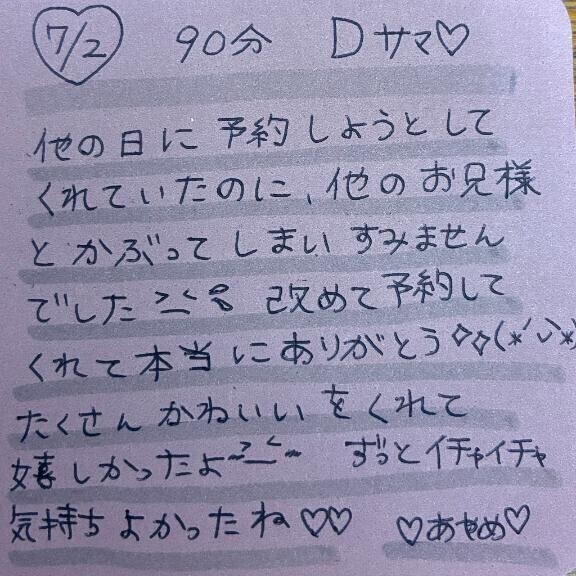 7/2 90分 Dサマ♡
他の日に予約しようとして
くれていたのに、他のお兄様
とかぶってしまいすみません
でした >_< 改めて予約して
くれて本当にありがとう✧✧(*´◡`*)
たくさんかわいいをくれて
嬉しかったよ~>_<~ ずっとイチャイチャ
気持ちよかったね♡♡ ♡あやめ♡